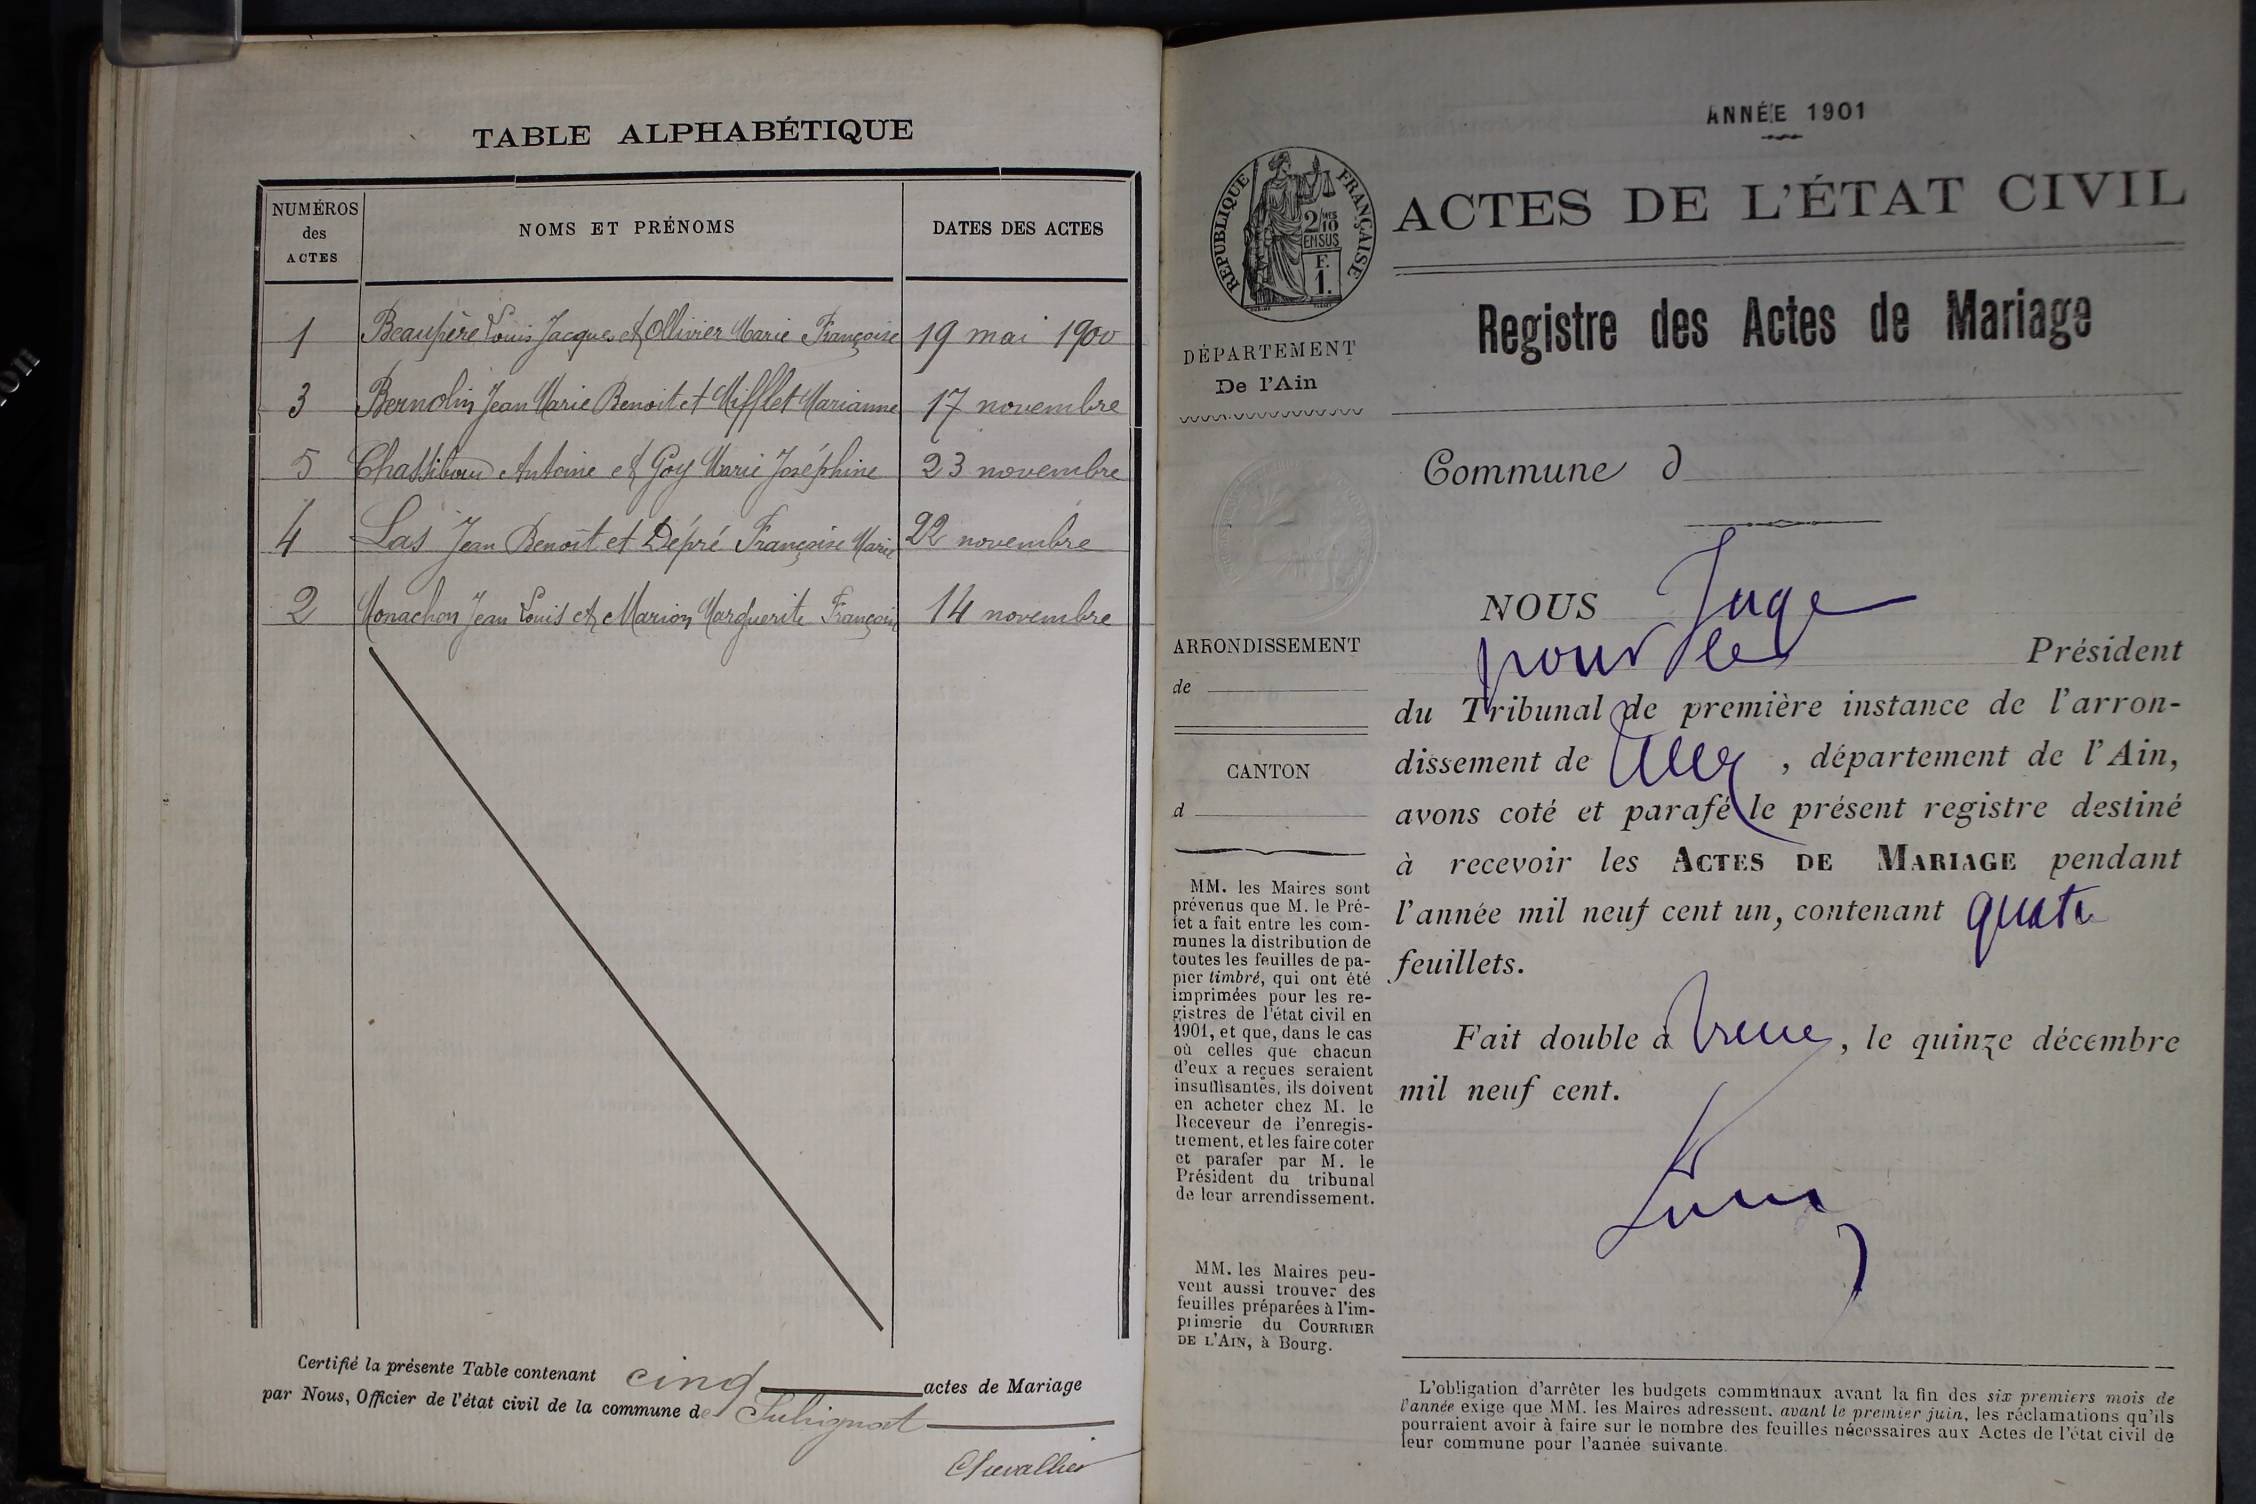 TABLE ALPHABÉTIQUE
NUMÉROS des ACTES
NOMS ET PRÉNOMS
DATES DES ACTES
1 Beaupère Louis Jacques et Ollivier Marie Françoise 19 mai 1900
3 Bernolin Jean Marie Benoit et Mifflet Marianne 17 novembre
5 Antoine et Goy Marie Joséphine 23 novembre
4 Las Jean Benoît et Dépré Françoise Marie 22 novembre
2 Monachon Jean Louis et Marion Marguerite Françoise 14 novembre
Certifié la présente Table contenant cinq actes de Mariage
par Nous, Officier de l'état civil de la commune de
Chevallier
ANNÉE 1901
RÉPUBLIQUE FRANÇAISE
2/10
EN SUS
F.
1.
ACTES DE L'ÉTAT CIVIL
Registre des Actes de Mariage
DÉPARTEMENT
De l'Ain
ARRONDISSEMENT
de
CANTON
d
MM. les Maires sont
prévenus que M. le Pré-
fet a fait entre les com-
munes la distribution de
toutes les feuilles de pa-
pier timbré, qui ont été
imprimées pour les re-
gistres de l'état civil en
1901, et que, dans le cas
où celles que chacun
d'eux a reçues seraient
insuffisantes, ils doivent
en acheter chez M. le
Receveur de l'enregis-
trement, et les faire coter
et parafer par M. le
Président du tribunal
de leur arrondissement.
MM. les Maires peu-
vent aussi trouver des
feuilles préparées à l'im-
primerie du COURRIER
DE L'AIN, à Bourg.
Commune d
NOUS Juge
pour le Président
du Tribunal de première instance de l'arron-
dissement de , département de l'Ain,
avons coté et parafé le présent registre destiné
à recevoir les ACTES DE MARIAGE pendant
l'année mil neuf cent un, contenant quatre
feuillets.
Fait double à , le quinze décembre
mil neuf cent.
L'obligation d'arrêter les budgets communaux avant la fin des six premiers mois de
l'année exige que MM. les Maires adressent, avant le premier juin, les réclamations qu'ils
pourraient avoir à faire sur le nombre des feuilles nécessaires aux Actes de l'état civil de
leur commune pour l'année suivante.